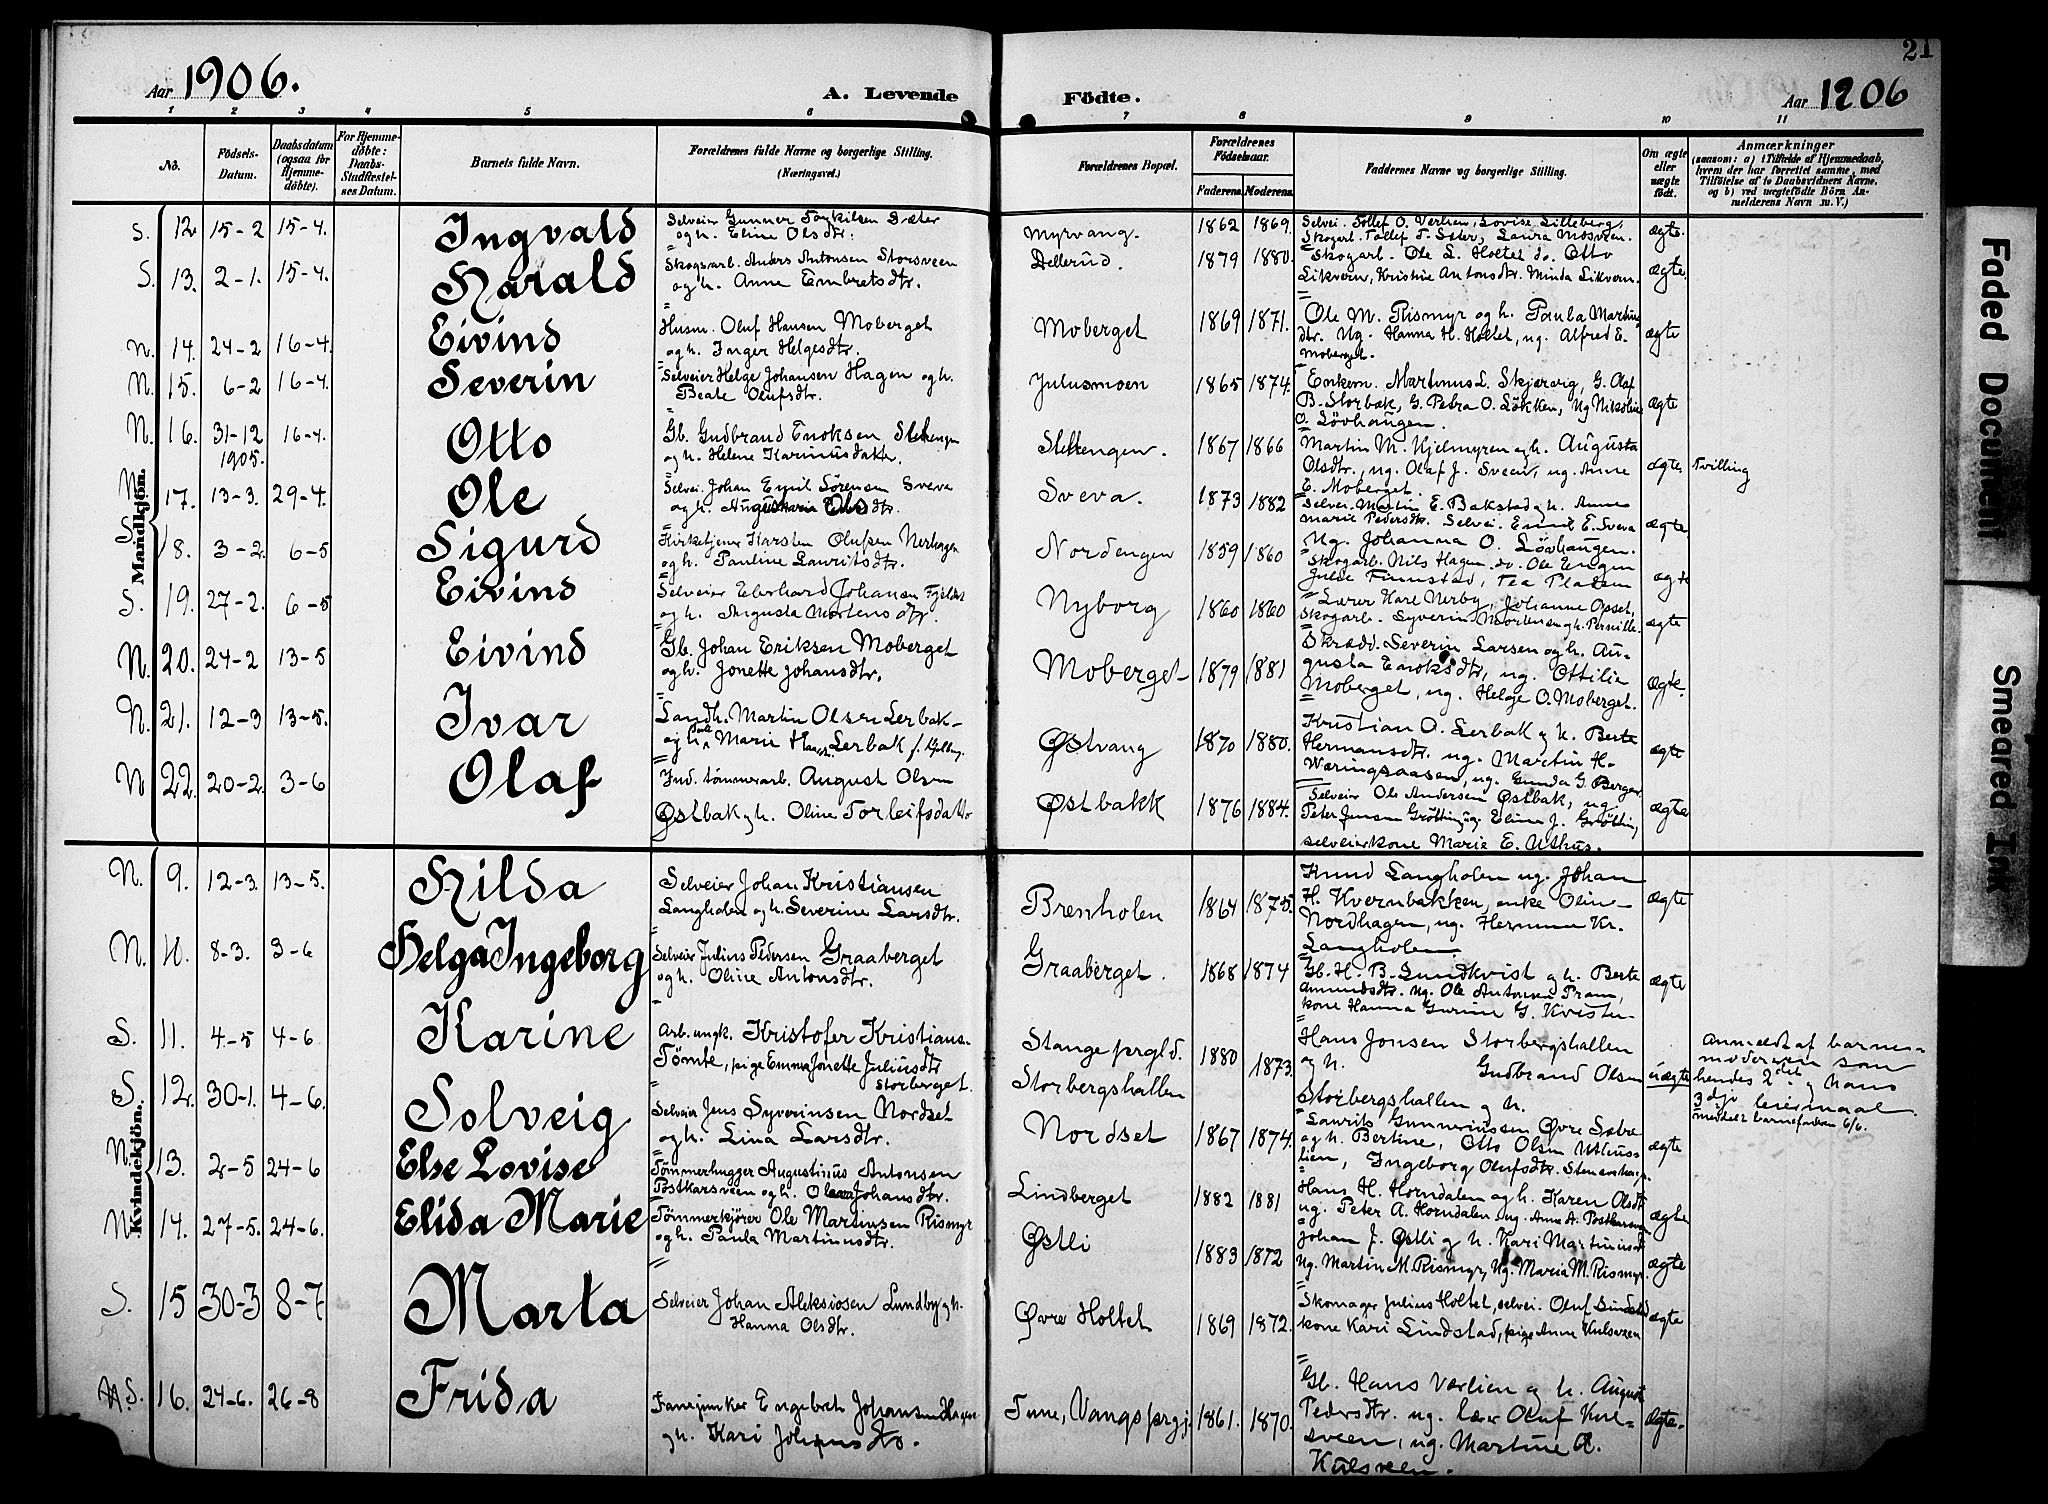 21
Aar 1906.
A. Levende Födte.
Aar 1906
1 2 3 4 5 6 7 8 9 10 11
No. Födsels-Datum. Daabsdatum (ogsaa for Hjemmedöbte). For Hjemmedöbte: Daabs-Stadfæstelses Datum. Barnets fulde Navn. Forældrenes fulde Navne og borgerlige Stilling. (Næringsvei.) Forældrenes Bopæl. Forældrenes Födselsaar. Faderens. Moderens. Faddernes Navne og borgerlige Stilling. Om ægte eller uægte födt. Anmærkninger
(saasom: a) i Tilfælde af Hjemmedaab, hvem der har forrettet samme, med Tilföielse af to Daabsvidners Navne, og b) ved uægtefödte Börn Anmelderens Navn m. V.)
Mandkjön.
S. 12. 15-2 15-4. Ingvald Selveier Gunner Torkilsen Sæter
og h. Eline Olsdtr. Myrvang. 1862 1869. Selvei. Tollef O. Værlien, Lovise Lilleberg,
Skogarb. Tollef T. Sæter, Laura Mosveen. ægte.
S. 13. 2-1. 15-4. Harald Skogsarb. Anders Antonsen Storsveen
og h. Anne Embretsdtr. Dellerud. 1879 1880. Skogarb. Ole L. Holtet do. Otto
Likvern, Kristine Antonsdtr. Minda Likvern. ægte.
N. 14. 24-2 16-4. Eivind Husm. Oluf Hansen Moberget
og h. Inger Helgesdtr. Moberget 1869 1871. Ole M. Rismyr og h. Paula Martins
dtr. Ug. Hanna H. Holtet, ug. Alfred E.
Moberget. ægte
N. 15. 6-2 16-4. Severin Selveier Helge Johansen Hagen og h.
Beate Olufsdtr. Julusmoen 1865 1874. Enkem. Martinus L. Skjærvig, G. Olaf
B. Storbæk, G. Petra O. Løkken, Ug Nikoline
O. Løvhaugen. ægte
N. 16. 31-12 1905. 16-4. Otto Gb. Gudbrand Enoksen Slettengen
og h. Helene Karinusdatter. Slettengen. 1867 1866 Martin M. Kjelmyren og h. Augusta
Olsdtr., ug. Olaf J. Sveen, ug. Anne
E. Moberget. ægte Tvilling
N. 17. 13-3. 29-4. Ole Selvei. Johan Emil Sørensen Sveva
og h. Olsdtr. Sveva. 1873 1882 Selvei. Martin E. Bakstad og h. Anne
Marie Pedersdtr. Selvei. Emil E. Sveva
Ug. Johanna O. Løvhaugen. ægte
S. 18. 3-2. 6-5 Sigurd Kirketjener Karsten Olufsen Nerhagen
og h. Pauline Lauritsdtr. Nordengen 1859 1860 Skogarb. Nils Hagen do. Ole Engen
Julie Finnstad, Tea Pladsen ægte
S. 19. 27-2. 6-5 Eivind Selveier Eberhard Johansen
og h. Augusta Mortensdtr. Nyborg 1860 1860 Lærer Karl Nerby, Johanne Opset,
Skogarb. Syverin Mortensen og h. Pernille. ægte
N. 20. 24-2 13-5 Eivind Gb. Johan Eriksen Moberget
og h. Jonette Johansdtr. Moberget 1879 1881 Skrædd. Severin Larsen og h. Augusta
Enoksdtr, ug. Ottilie
Moberget, ug. Helge O. Moberget. ægte.
N. 21. 12-3 13-5. Ivar Landh. Martin Olsen Lerbak
og h. Marie Lerbak Østvang 1870 1880. Kristian O. Lerbak og h. Berte
Hermansdtr. ug. Martin H.
Wæringsaasen, ug. Gunda G. Berger ægte
N 22. 20-2. 3-6 Olaf Ind. tømmerarb. August Olsen
Østbak og h. Oline Torleifsdatter Østbakk 1876 1884. Selveier Ole Andersen Østbak, ug.
Peter Jensen Grøtting, ug. Eline J. Grøttin,
selveierkone Marie E. Uthus. ægte
Kvindekjön.
N. 9. 12-3. 13-5. Hilda Selveier Johan Kristiansen
Langholen og h. Severine Larsdtr. Brenholen 1864 1875. Knud Langholen ug. Johan
H. Kvernbakken, enke Olin-
Nordhagen, ug. Hermine Kr.
Langholen. ægte
N. 10. 8-3. 3-6 Helga Ingeborg Selveier Julius Pedersen Graaberget
og h. Oline Antonsdtr. Graaberget. 1868 1874 Gb. H. B. Lundkvist og h. Berte
Amundsdtr. Ug. Ole Antonsen Pram,
kone Hanna Gurine G. Kvister- ægte
S. 11. 4-5 4-6. Karine Arb. ungk. Kristofer Kristians.
Tømte, pige Emma Jonette Juliusdtr
Storberget. Stange prgld.
Storbergshallen 1880 1873. Hans Jonsen Storbergshallen
og h. Gudbrand Olsen
Storbergshallen og h. uægte Anmeldt af barnemoderen
som
hendes 2det og hans
3die leiermaal.
meddelt barnefaderen 6/6.
S. 12. 30-1. 4-6. Solveig Selveier Jens Syverinsen Nordset
og h. Lina Larsdtr. Nordset 1867 1874. Laurits Gunneriussen Øvre Sætre
og h. Bertine, Otto Olsen Uthus-
lien, Ingeborg Olufsdtr. ægte
N. 13. 2-5 24-6 Else Lovise Tømmerhugger Augustinus Antonsen
Postkarsveen og h. Johansdtr. Lindberget 1882 1881 Hans H. Horndalen og h. Karen Olsdtr
ug. Peter A. Horndalen, ug. Anne A. Postkarsveen ægte
N. 14. 27-5. 24-6. Elida Marie Tømmerkjører Ole Martinsen Rismyr
og h. Paula Martinusdtr. Østli 1883 1872 Johan J. Østli og h. Kari Martinusd
Ug. Martin M. Rismyr, Ug. Maria M. Rismyr. ægte
S. 15 30-3 8-7 Marta Selveier Johan Aleksiosen Lundby og h.
Hanna Olsdtr. Øvre Holtet 1869 1872. Skomager Julius Holtet, selvei. Oluf Lindstad
kone Kari Lindstad, pige Anne Kulsveen ægte
S. 16. 24-6. 26-8 Frida Fanejunker Engebret Johansen Hagen
og h. Kari Johansdtr. Tune, Vangs prgj. 1861. 1870. Gb. Hans Værlien og h. August
Pedersdtr. ug. lærer Oluf Kul-
sveen, ug. Martine A.
Kulsveen. ægte.
Faded Document
Smeared Ink